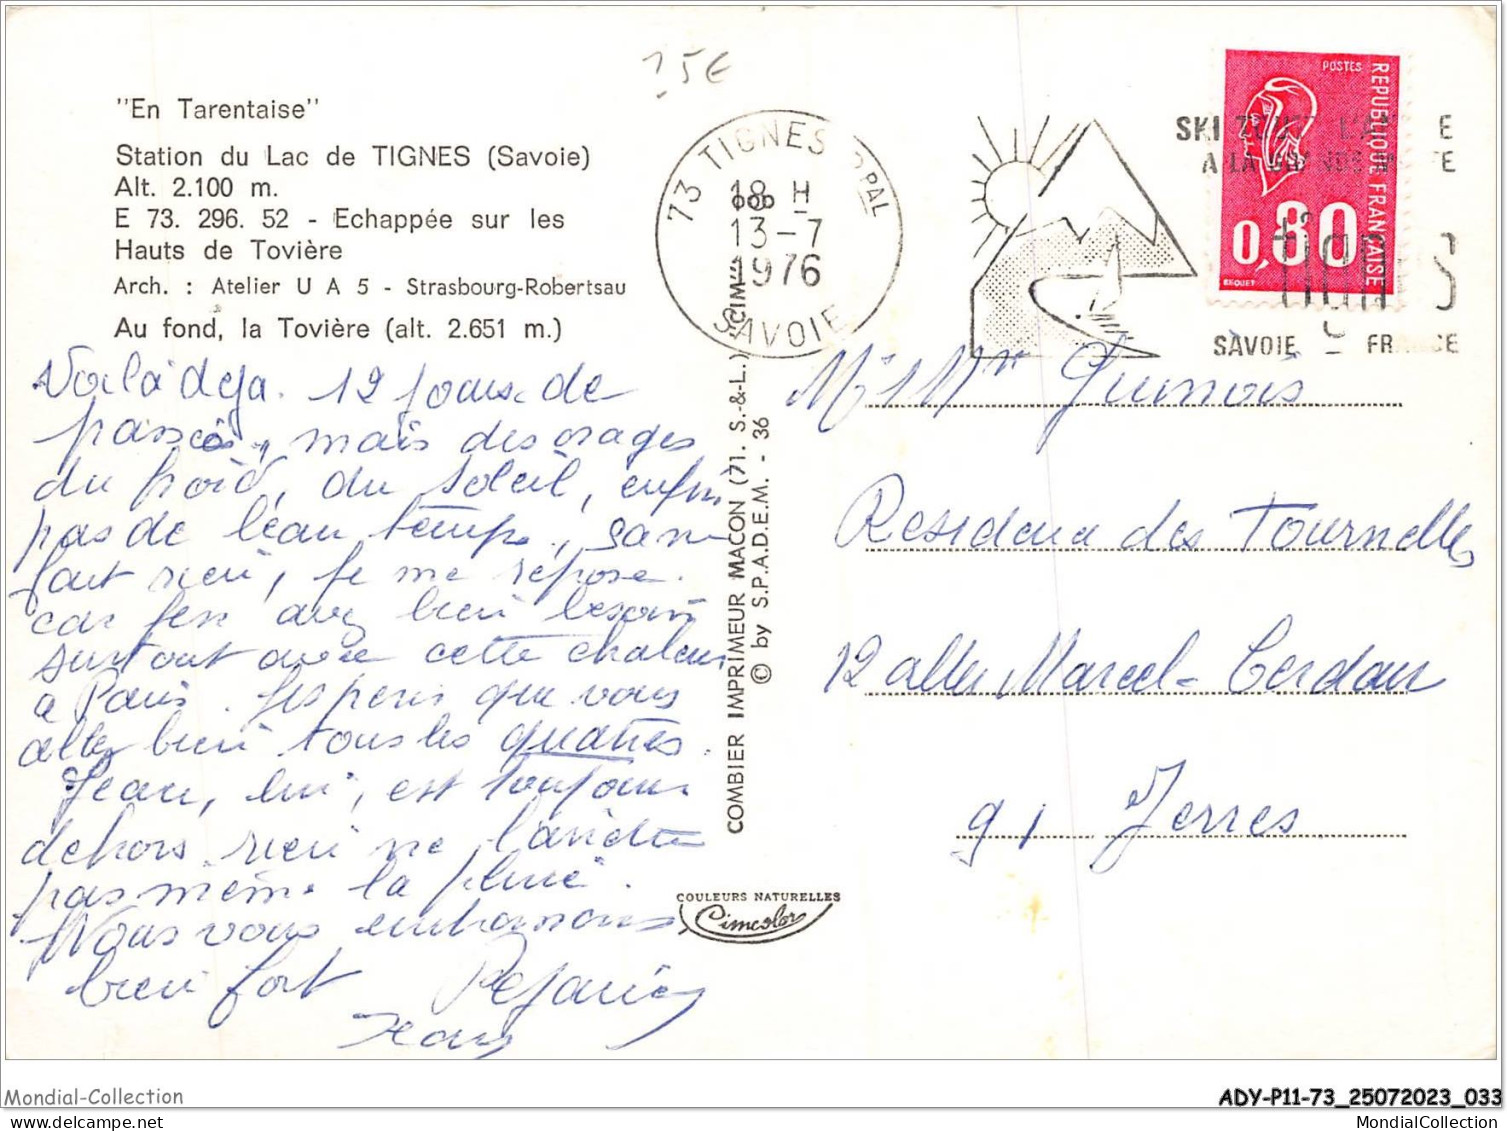 25€
"En Tarentaise"
Station du Lac de TIGNES (Savoie)
Alt. 2.100 m.
E 73. 296. 52 - Echappée sur les
Hauts de Tovière
Arch. : Atelier U A 5 - Strasbourg-Robertsau
Au fond, la Tovière (alt. 2.651 m.)
Voilà deja 12 jours de
passés, mais des orages
du froid, du soleil, enfin
pas de beau temps, sans
faut rien, je me repose
car j'en avez bien besoin
surtout avec cette chaleur
à Paris. J'esperes que vous
allez bien tous les quatres.
Jean, lui, est toujours
dehors rien ne l'arrette
pas même la pluie.
Nous vous embrassons
bien fort
Jean
73 TIGNES PPAL
18 H
13-7
1976
SAVOIE
SKI
A LA
tignes
SAVOIE - FRANCE
POSTES
REPUBLIQUE FRANÇAISE
0,80
BEQUET
COMBIER IMPRIMEUR MACON (71. S.-&-L.) "CIM"
© by S.P.A.D.E.M. - 36
COULEURS NATURELLES
Cimcolor
Mr & Mme Guinois
Residence des Tournelles
12 allée Marcel-Cerdan
91 Yerres
Mondial-Collection
ADY-P11-73_25072023_033
MondialCollection.com